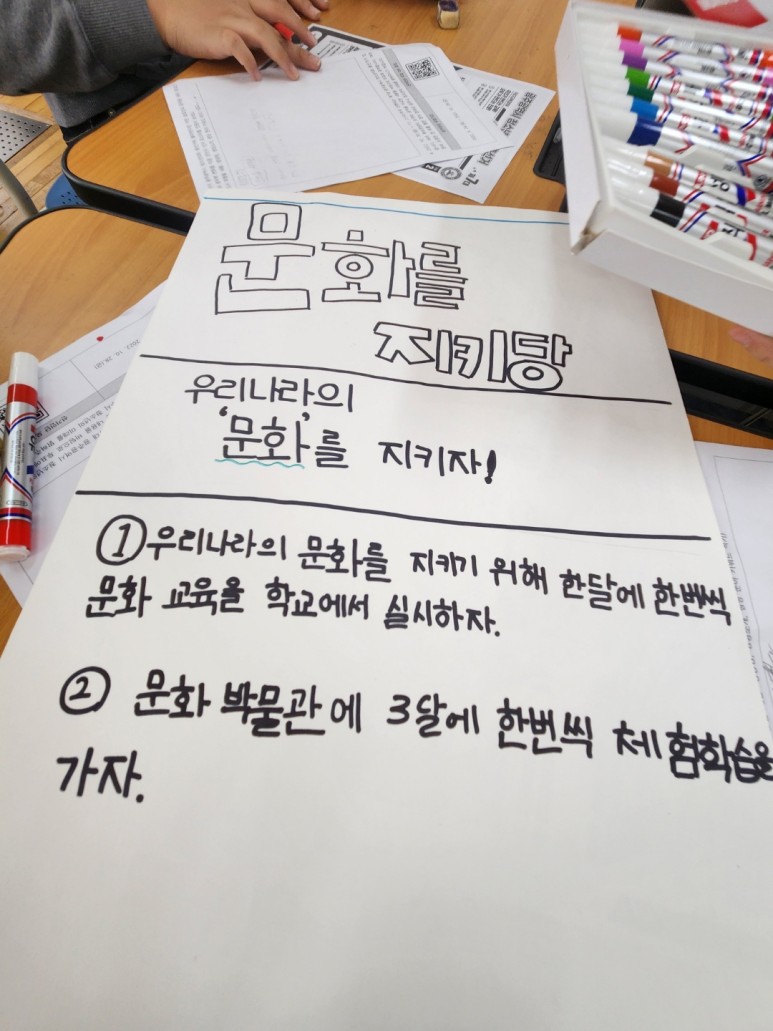 문화를
지키당
우리나라의
'문화'를 지키자!
① 우리나라의 문화를 지키기 위해 한달에 한번씩
문화 교육을 학교에서 실시하자.
② 문화 박물관에 3달에 한번씩 체험학습을
가자.